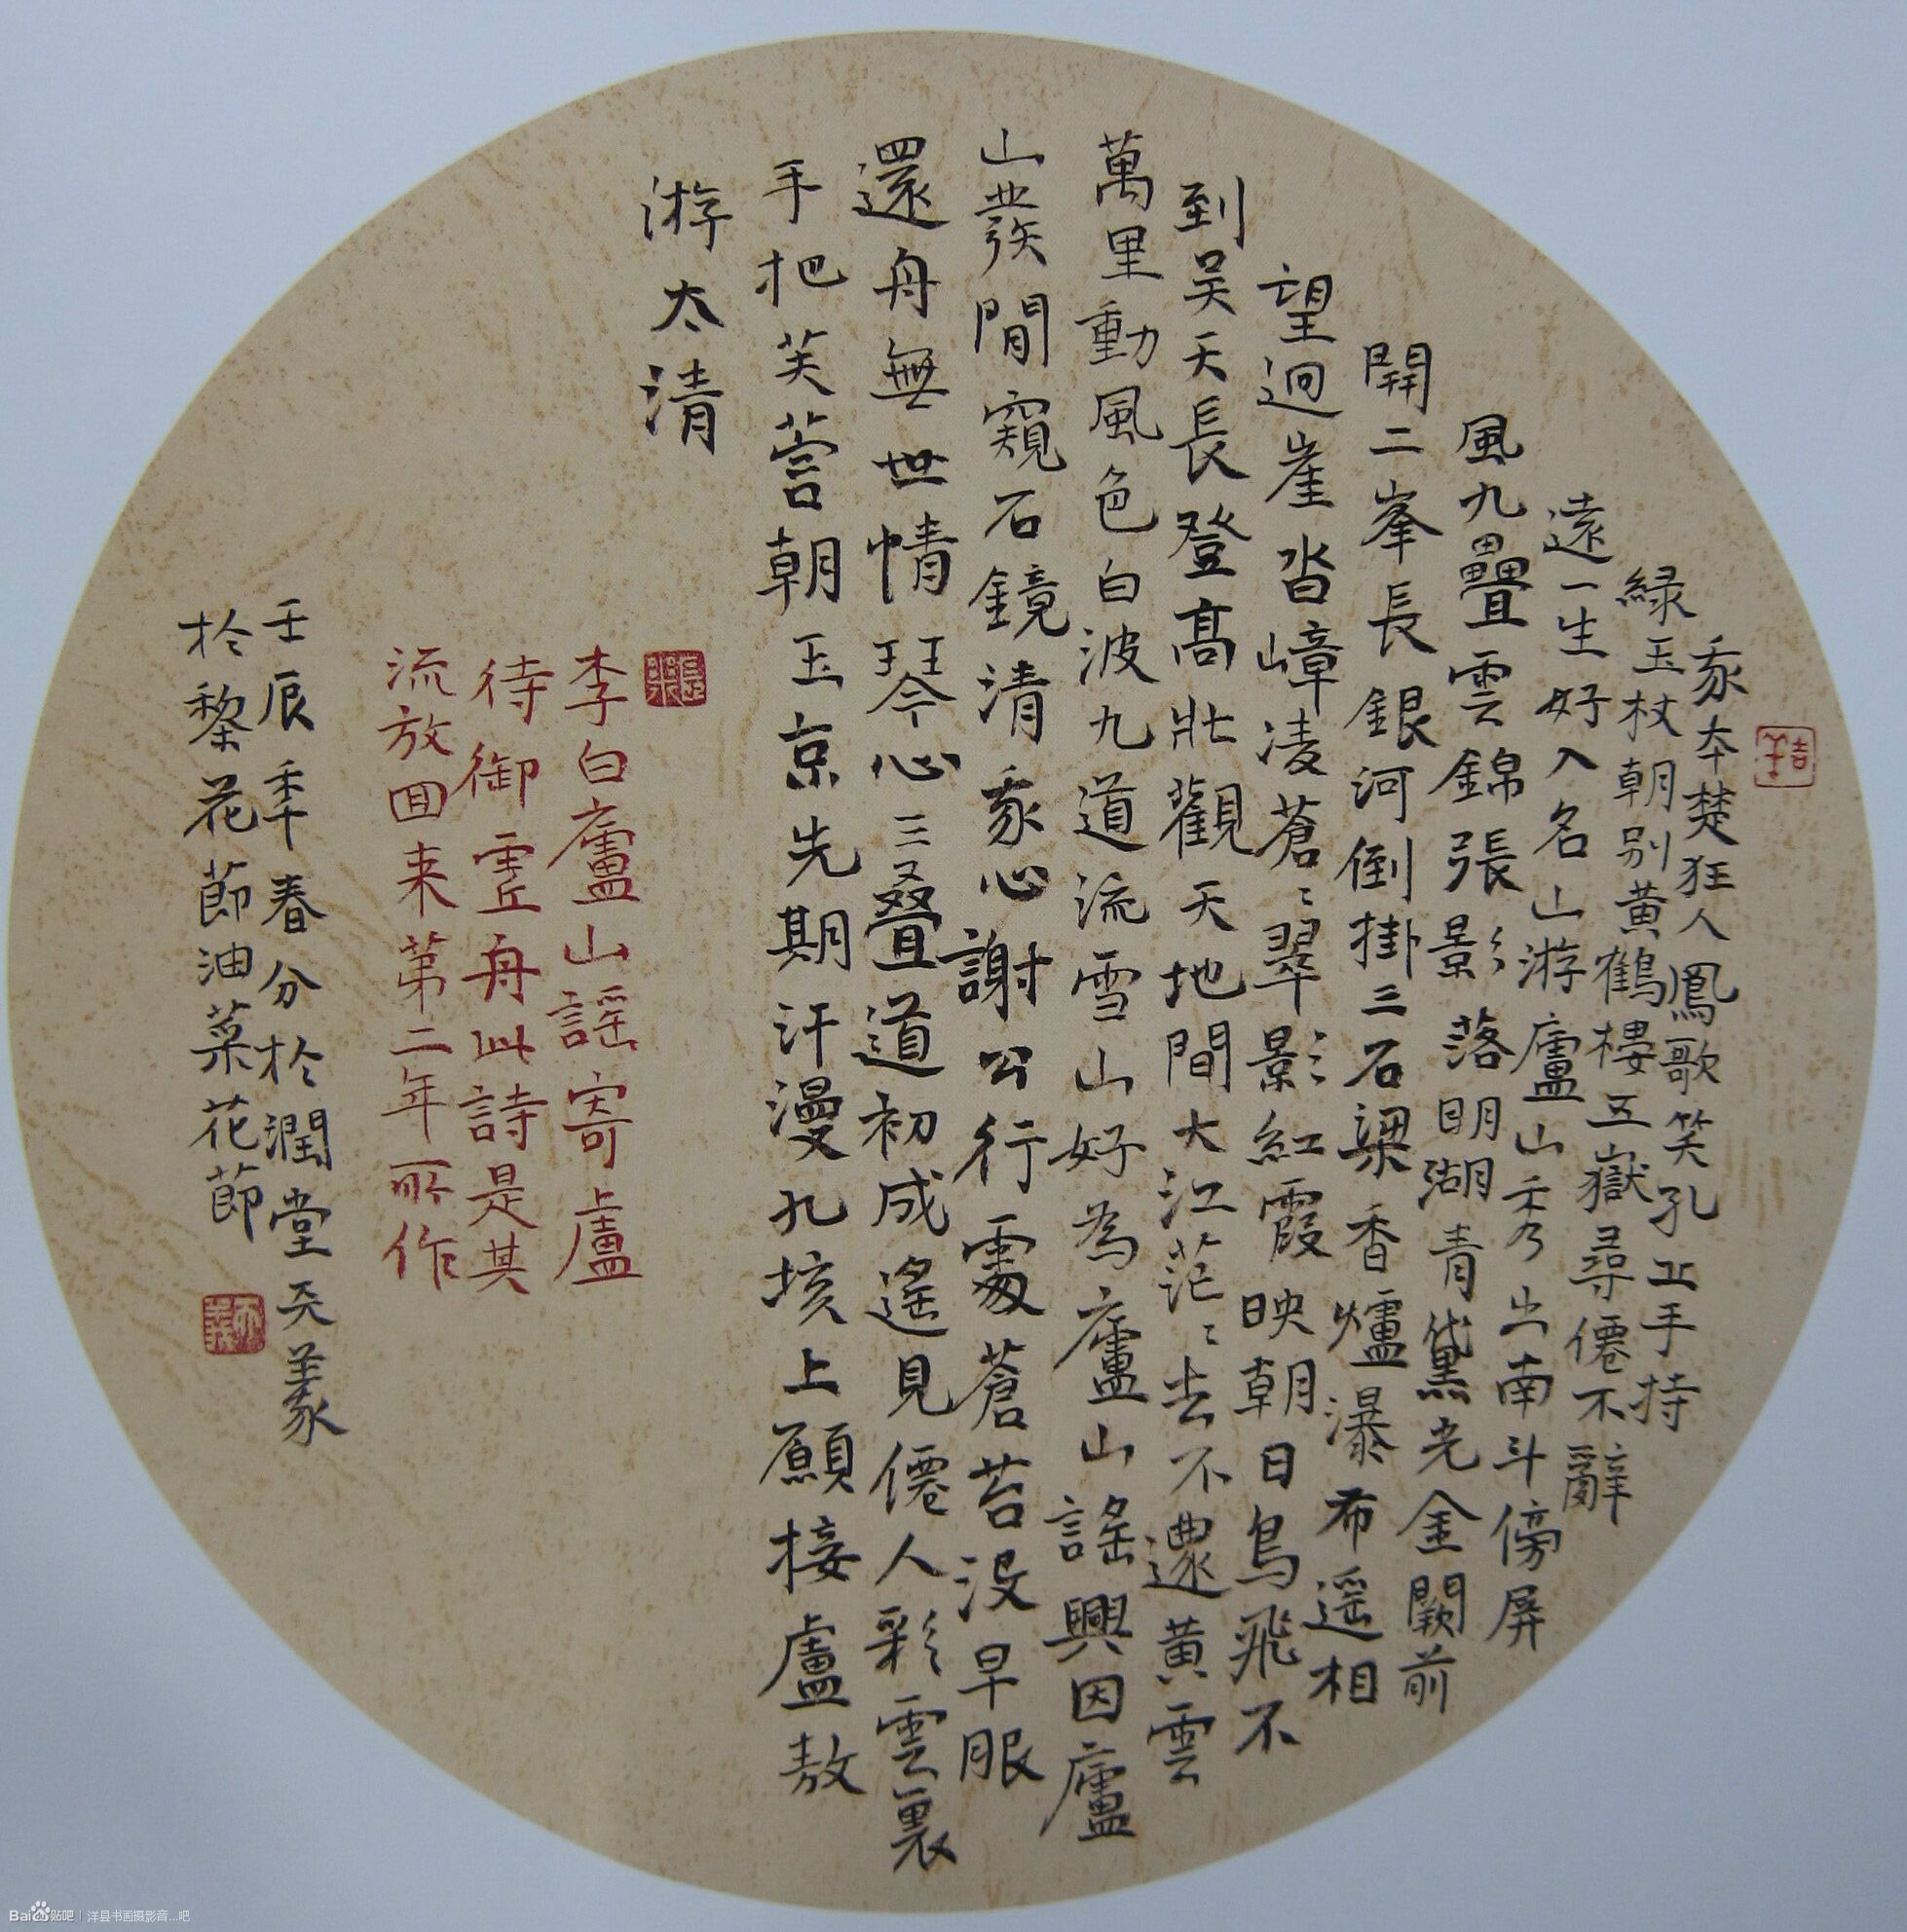 我本楚狂人鳳歌笑孔丘手持
緑玉杖朝别黄鶴樓五嶽尋僊不辭
遠一生好入名山游廬山秀出南斗傍屏
風九疊雲錦張影落明湖青黛光金闕前
開二峯長銀河倒掛三石梁香爐瀑布遥相
望迥崖沓嶂凌蒼〻翠影紅霞映朝日鳥飛不
到吴天長登髙壯觀天地間大江茫〻去不還黄雲
萬里動風色白波九道流雪山好為廬山謡興因廬
山發閒窺石鏡清我心謝公行處蒼苔没早服
還舟無世情琴心三叠道初成遙見僊人彩雲裏
手把芙蓉朝玉京先期汗漫九垓上願接盧敖
游太清
李白廬山謡寄盧
待御虛舟此詩是其
流放回来第二年所作
壬辰年春分於潤堂天義
於黎花節油菜花節
Bai du 贴吧 | 洋县书画摄影音...吧